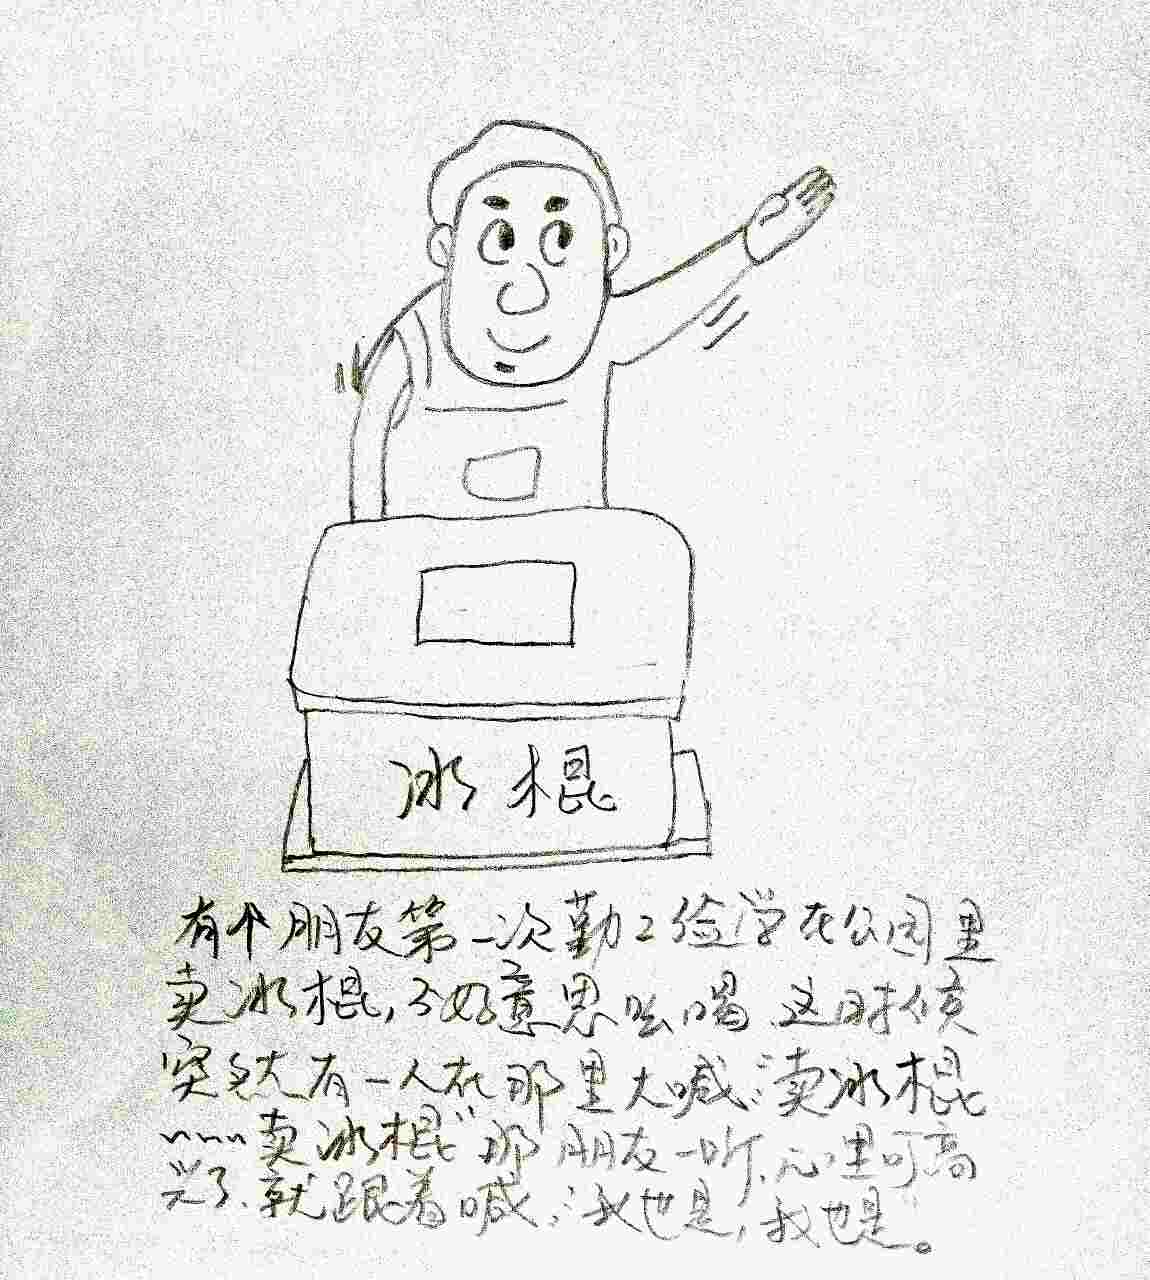 冰棍
有个朋友第一次勤工俭学在公园里
卖冰棍,不好意思吆喝、这时候
突然有一人在那里大喊:"卖冰棍
~~~~卖冰棍"那朋友一听、心里可高
兴了、就跟着喊:"我也是,我也是。